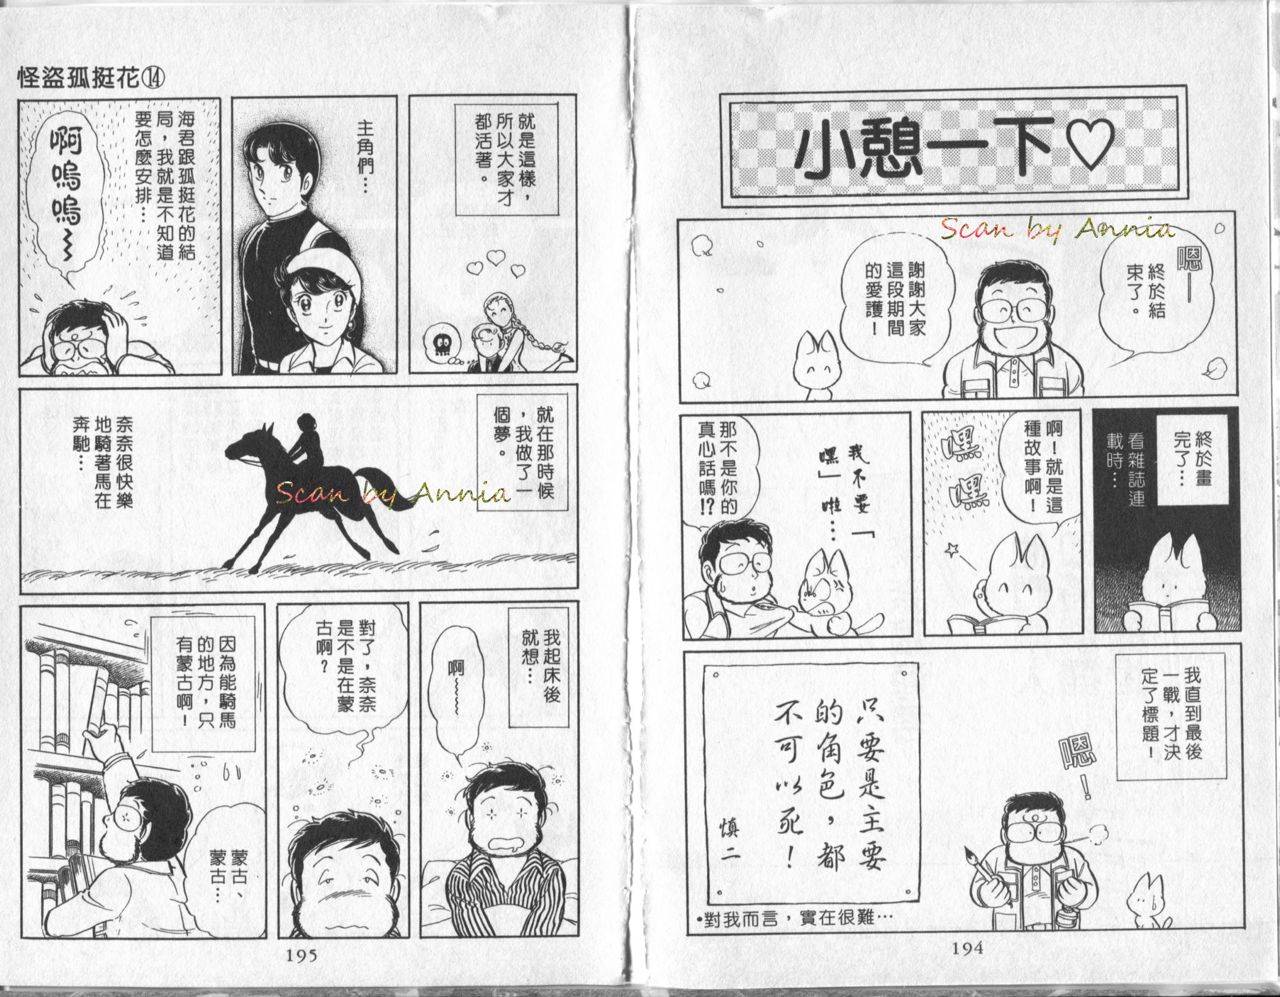 小憩一下♡
Scan by Annia
嗯——
終於結
束了。
謝謝大家
這段期間
的愛護！
終於畫
完了…
看雜誌連
載時…
啊！就是這
種故事啊！
嘿
嘿
我不要「
嘿」啦…
那不是你的
真心話嗎!?
我直到最後
一戰，才決
定了標題！
嗯！
只要是主要
的角色，都
不可以死！
慎二
•對我而言，實在很難…
194
怪盜孤挺花⑭
就是這樣，
所以大家才
都活著。
主角們…
海君跟孤挺花的結
局，我就是不知道
要怎麼安排…
啊嗚嗚～
就在那時候
，我做了一
個夢。
Scan by Annia
奈奈很快樂
地騎著馬在
奔馳…
我起床後
就想…
啊～～
對了，奈奈
是不是在蒙
古啊？
因為能騎馬
的地方，只
有蒙古啊！
蒙古、
蒙古…
195